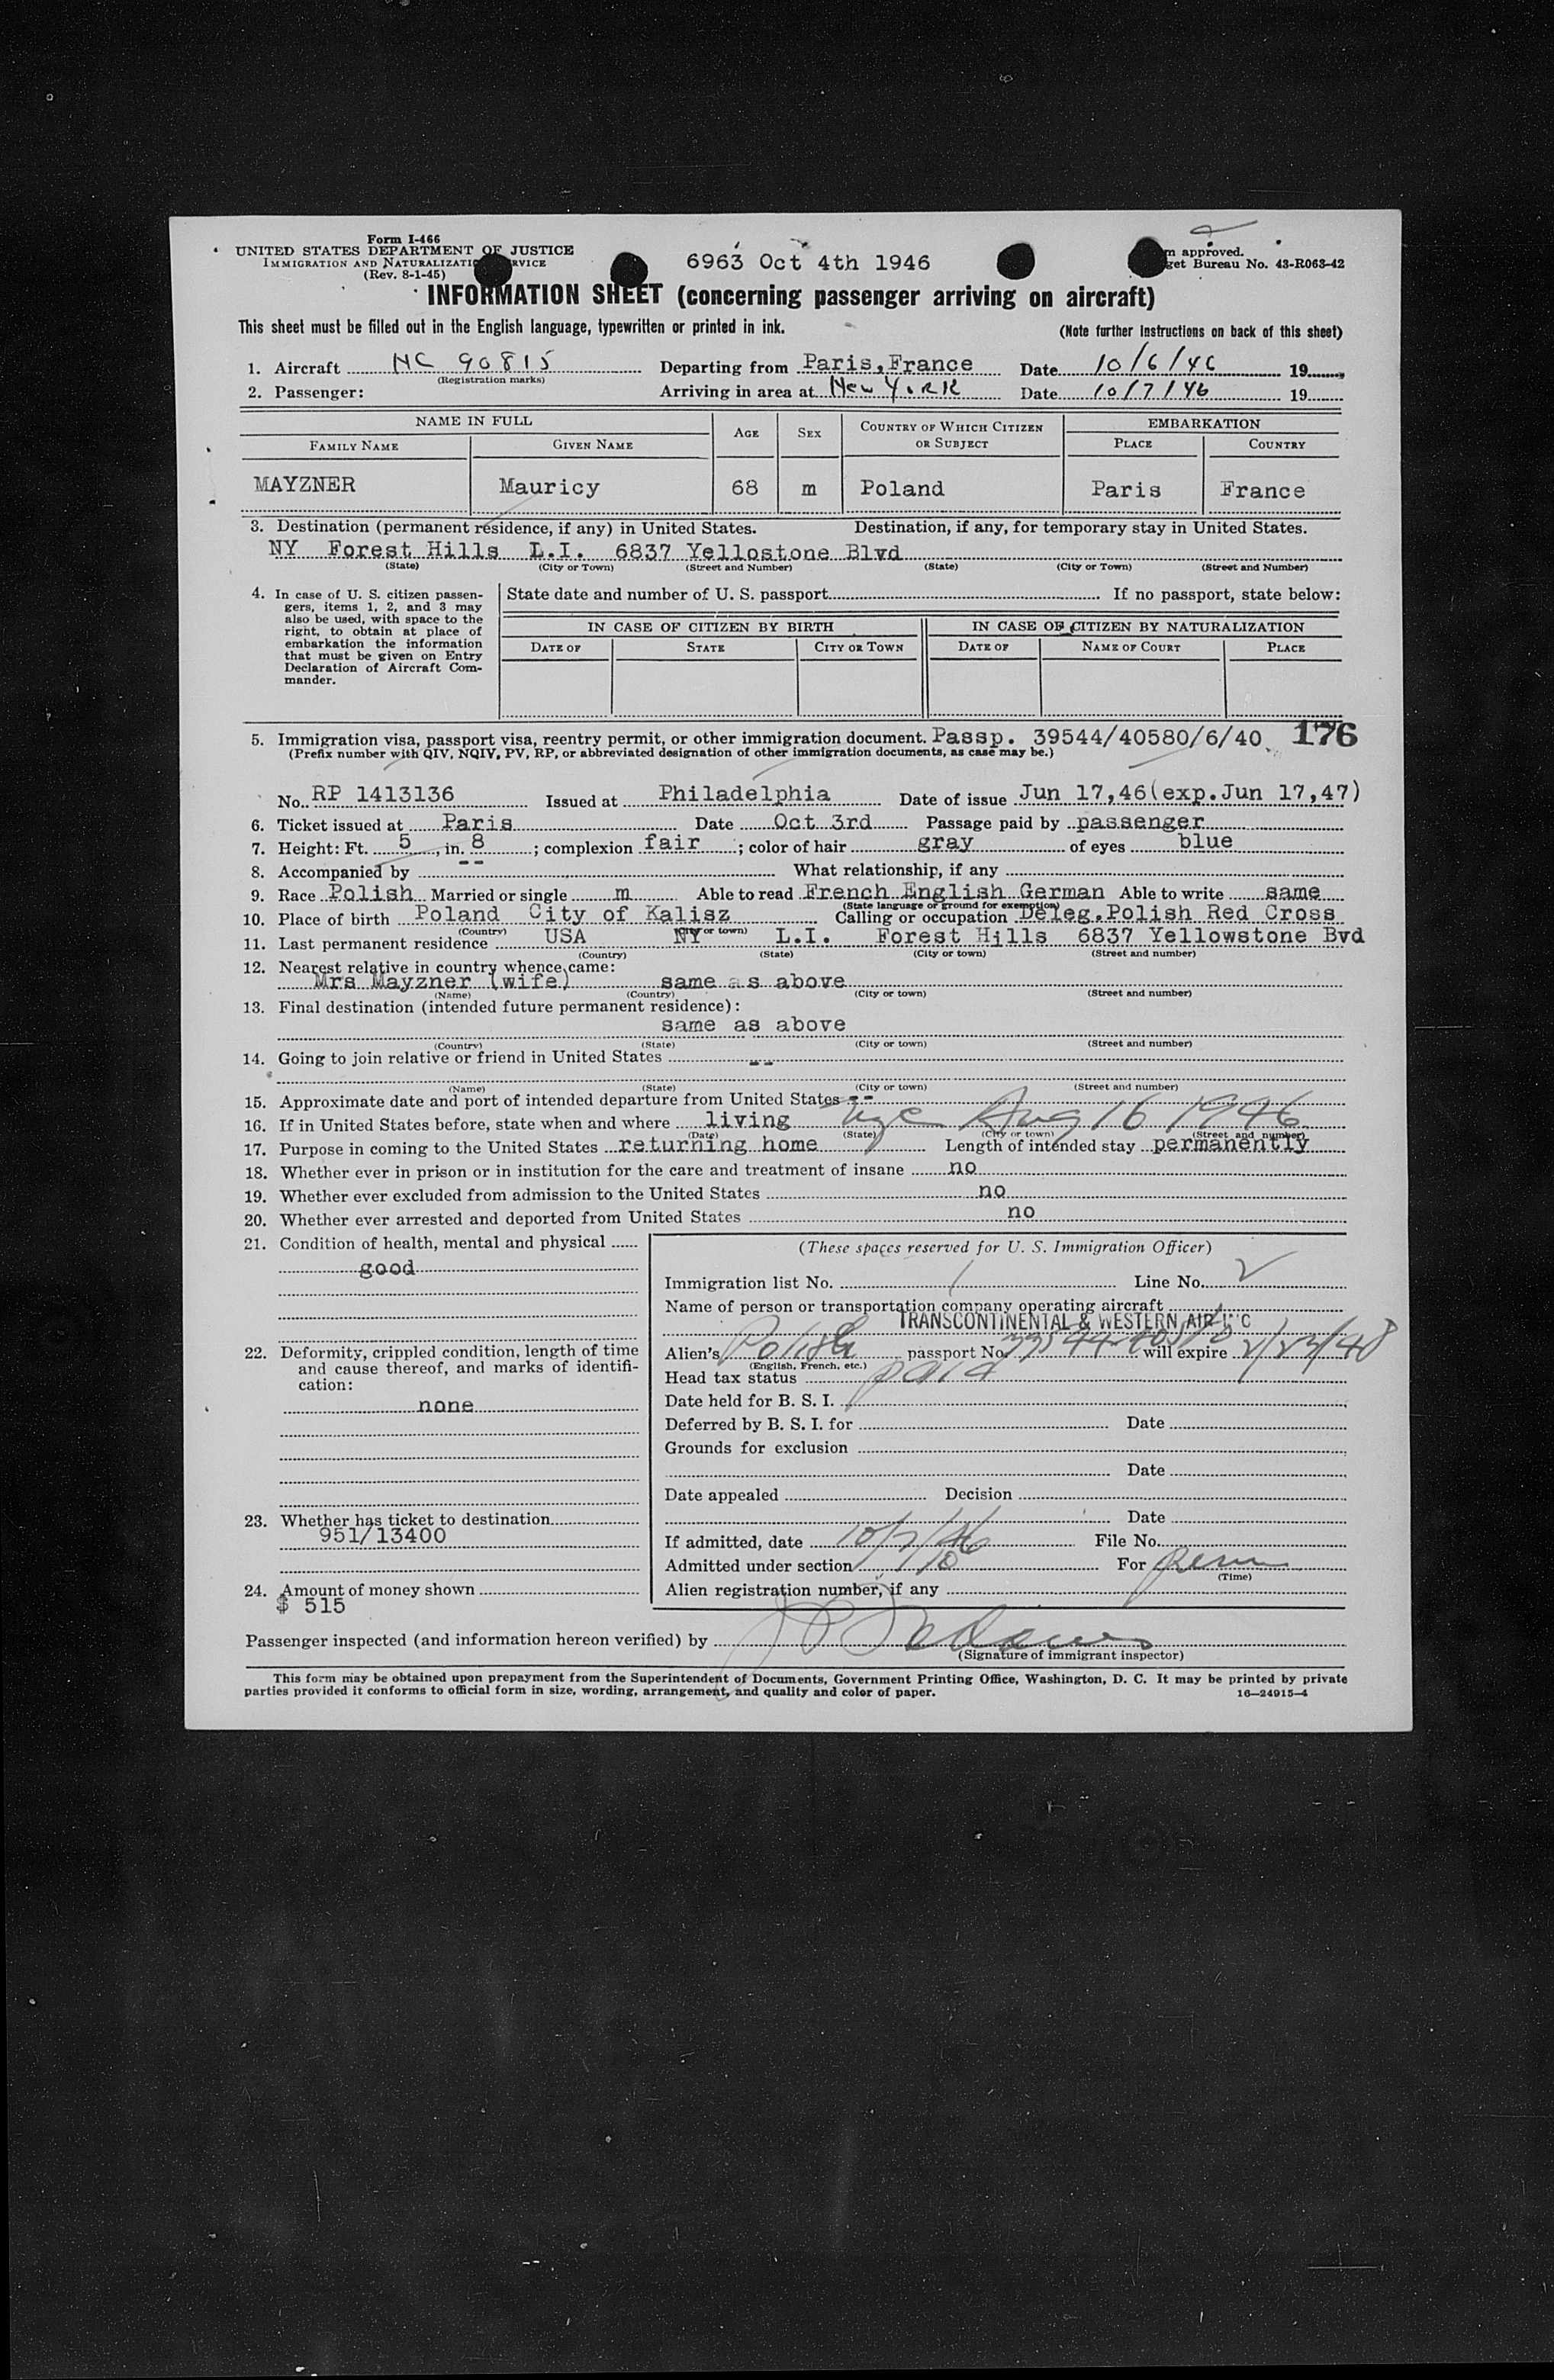 Form I-466
UNITED STATES DEPARTMENT OF JUSTICE
IMMIGRATION AND NATURALIZATIO RVICE
(Rev. 8-1-45)
6963 Oct 4th 1946
m approved.
get Bureau No. 43-R063-42
INFORMATION SHEET (concerning passenger arriving on aircraft)
This sheet must be filled out in the English language, typewritten or printed in ink. (Note further instructions on back of this sheet)
1. Aircraft NC 90815 Departing from Paris, France Date 10/6/46 19
(Registration marks)
2. Passenger: Arriving in area at New York Date 10/7/46 19
NAME IN FULL AGE SEX COUNTRY OF WHICH CITIZEN OR SUBJECT EMBARKATION
FAMILY NAME GIVEN NAME PLACE COUNTRY
MAYZNER Mauricy 68 m Poland Paris France
3. Destination (permanent residence, if any) in United States. Destination, if any, for temporary stay in United States.
NY Forest Hills L.I. 6837 Yellostone Blvd
(State) (City or Town) (Street and Number) (State) (City or Town) (Street and Number)
4. In case of U. S. citizen passen-
gers, items 1, 2, and 3 may
also be used, with space to the
right, to obtain at place of
embarkation the information
that must be given on Entry
Declaration of Aircraft Com-
mander.
State date and number of U. S. passport If no passport, state below:
IN CASE OF CITIZEN BY BIRTH IN CASE OF CITIZEN BY NATURALIZATION
DATE OF STATE CITY OR TOWN DATE OF NAME OF COURT PLACE
5. Immigration visa, passport visa, reentry permit, or other immigration document. Passp. 39544/40580/6/40 176
(Prefix number with QIV, NQIV, PV, RP, or abbreviated designation of other immigration documents, as case may be.)
No. RP 1413136 Issued at Philadelphia Date of issue Jun 17,46(exp.Jun 17,47)
6. Ticket issued at Paris Date Oct 3rd Passage paid by passenger
7. Height: Ft. 5, in. 8; complexion fair; color of hair gray of eyes blue
8. Accompanied by -- What relationship, if any
9. Race Polish Married or single m Able to read French English German Able to write same
(State language or ground for exemption)
10. Place of birth Poland City of Kalisz Calling or occupation Deleg.Polish Red Cross
(Country) (City or town)
11. Last permanent residence USA NY L.I. Forest Hills 6837 Yellowstone Bvd
(Country) (State) (City or town) (Street and number)
12. Nearest relative in country whence came:
Mrs Mayzner (wife) same as above
(Name) (Country) (City or town) (Street and number)
13. Final destination (intended future permanent residence):
same as above
(Country) (State) (City or town) (Street and number)
14. Going to join relative or friend in United States --
(Name) (State) (City or town) (Street and number)
15. Approximate date and port of intended departure from United States --
16. If in United States before, state when and where living nyc Aug 16 1946
(Date) (State) (City or town) (Street and number)
17. Purpose in coming to the United States returning home Length of intended stay permanently
18. Whether ever in prison or in institution for the care and treatment of insane no
19. Whether ever excluded from admission to the United States no
20. Whether ever arrested and deported from United States no
21. Condition of health, mental and physical
good
22. Deformity, crippled condition, length of time
and cause thereof, and marks of identifi-
cation:
none
23. Whether has ticket to destination
951/13400
24. Amount of money shown
$ 515
(These spaces reserved for U. S. Immigration Officer)
Immigration list No. 1 Line No. 2
Name of person or transportation company operating aircraft
TRANSCONTINENTAL & WESTERN AIR INC
Alien's Polish passport No. will expire 2/23/48
(English, French, etc.)
Head tax status paid
Date held for B. S. I.
Deferred by B. S. I. for Date
Grounds for exclusion
Date
Date appealed Decision
Date
If admitted, date 10/7/46 File No.
Admitted under section For perm
(Time)
Alien registration number, if any
Passenger inspected (and information hereon verified) by
(Signature of immigrant inspector)
This form may be obtained upon prepayment from the Superintendent of Documents, Government Printing Office, Washington, D. C. It may be printed by private
parties provided it conforms to official form in size, wording, arrangement, and quality and color of paper. 16—24915-4